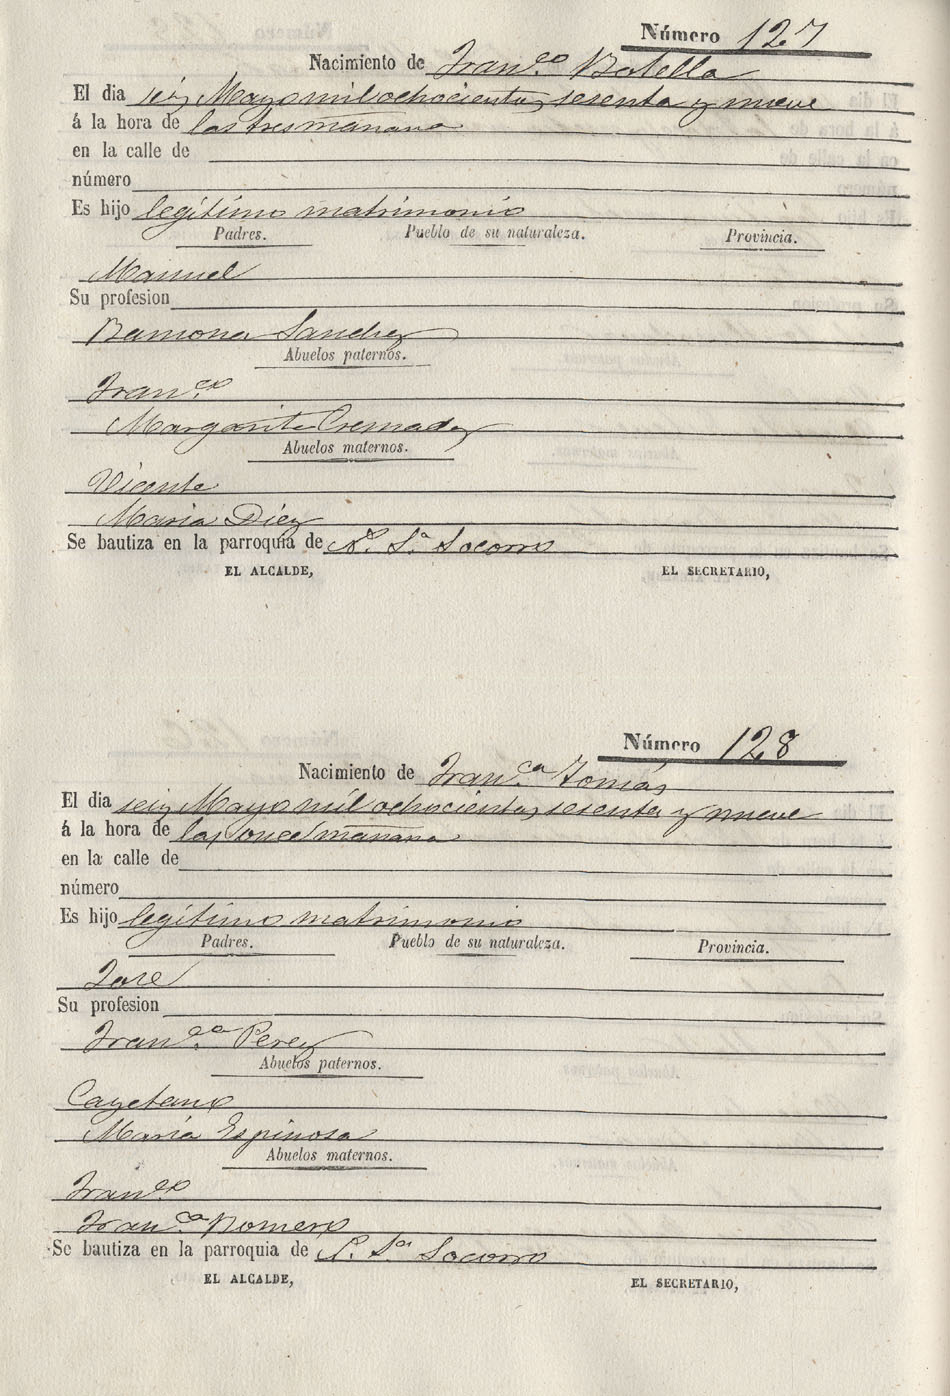 Número 127
Nacimiento de Fran.co Botella
El dia seis Mayo mil ochocientos sesenta y nueve
á la hora de las tres mañana
en la calle de
número
Es hijo legítimo matrimonio
Padres. Pueblo de su naturaleza. Provincia.
Manuel
Su profesion
Ramona Sanchez
Abuelos paternos.
Fran.co
Margarita Cremades
Abuelos maternos.
Vicente
Maria Diez
Se bautiza en la parroquia de N. Sª Socorro
EL ALCALDE, EL SECRETARIO,
Número 128
Nacimiento de Fran.ca Tomás
El dia seis Mayo mil ochocientos sesenta y nueve
á la hora de las once mañana
en la calle de
número
Es hijo legítimo matrimonio
Padres. Pueblo de su naturaleza. Provincia.
José
Su profesion
Fran.ca Perez
Abuelos paternos.
Cayetano
Maria Espinosa
Abuelos maternos.
Fran.co
Fran.ca Romero
Se bautiza en la parroquia de Sª Socorro
EL ALCALDE, EL SECRETARIO,